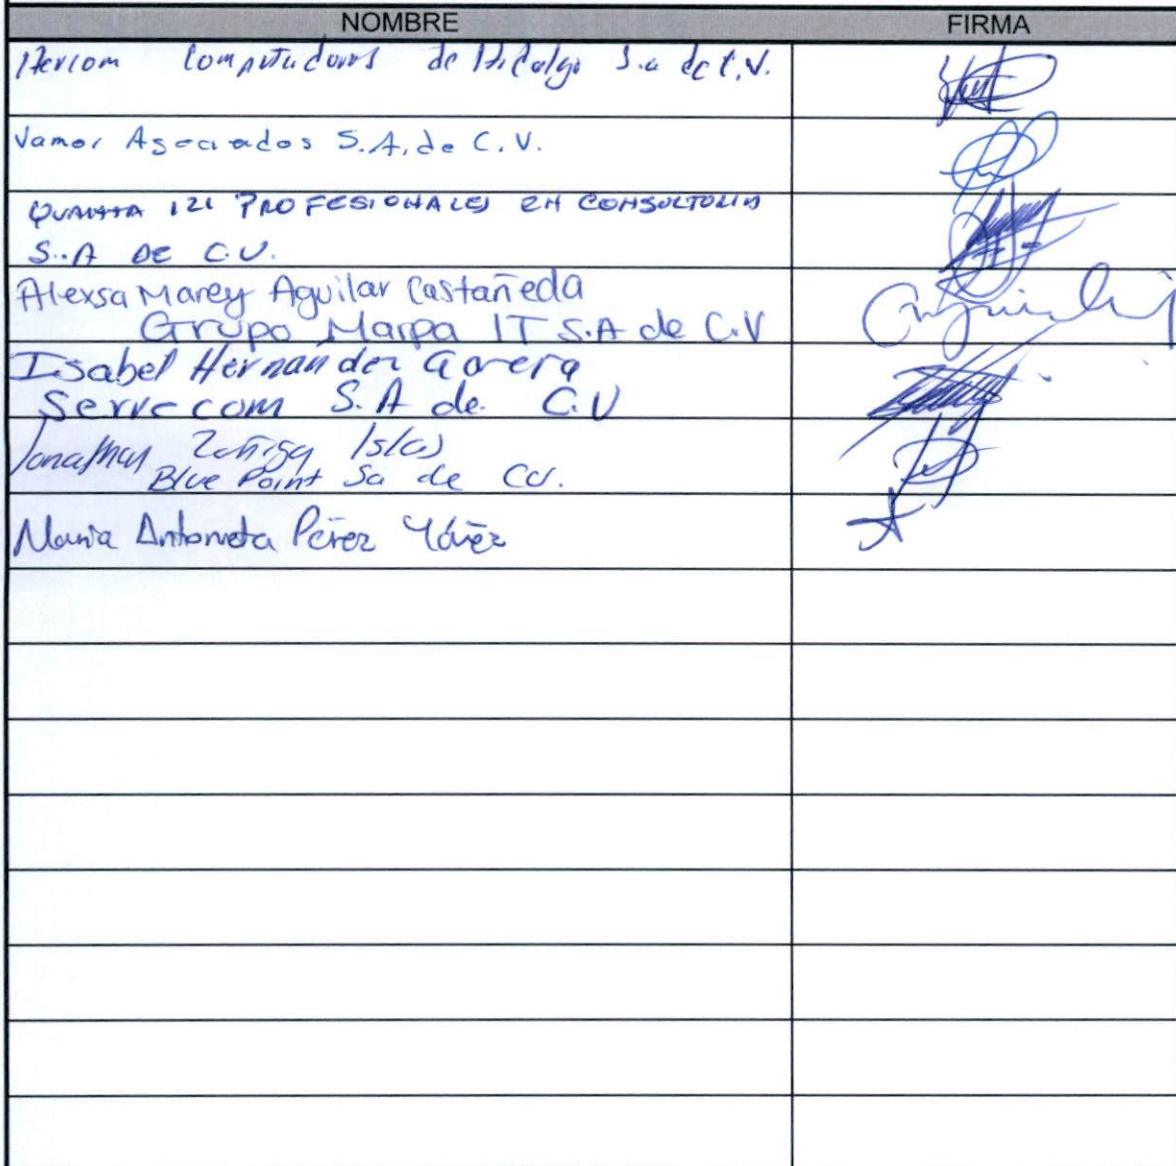 NOMBRE FIRMA
Hercom Computadoras de Hidalgo S.a de C.V.
Vamor Asociados S.A. de C.V.
121 PROFESIONALES EN CONSULTORIA
S.A DE C.V.
Alexsa Marey Aguilar Castañeda
Grupo Marpa IT S.A de C.V
Isabel Hernandez
Servecom S.A de C.V
Jonathan Zuñiga Islas
Blue Point Sa de CV.
Maria Antonieta Pérez Yáñez